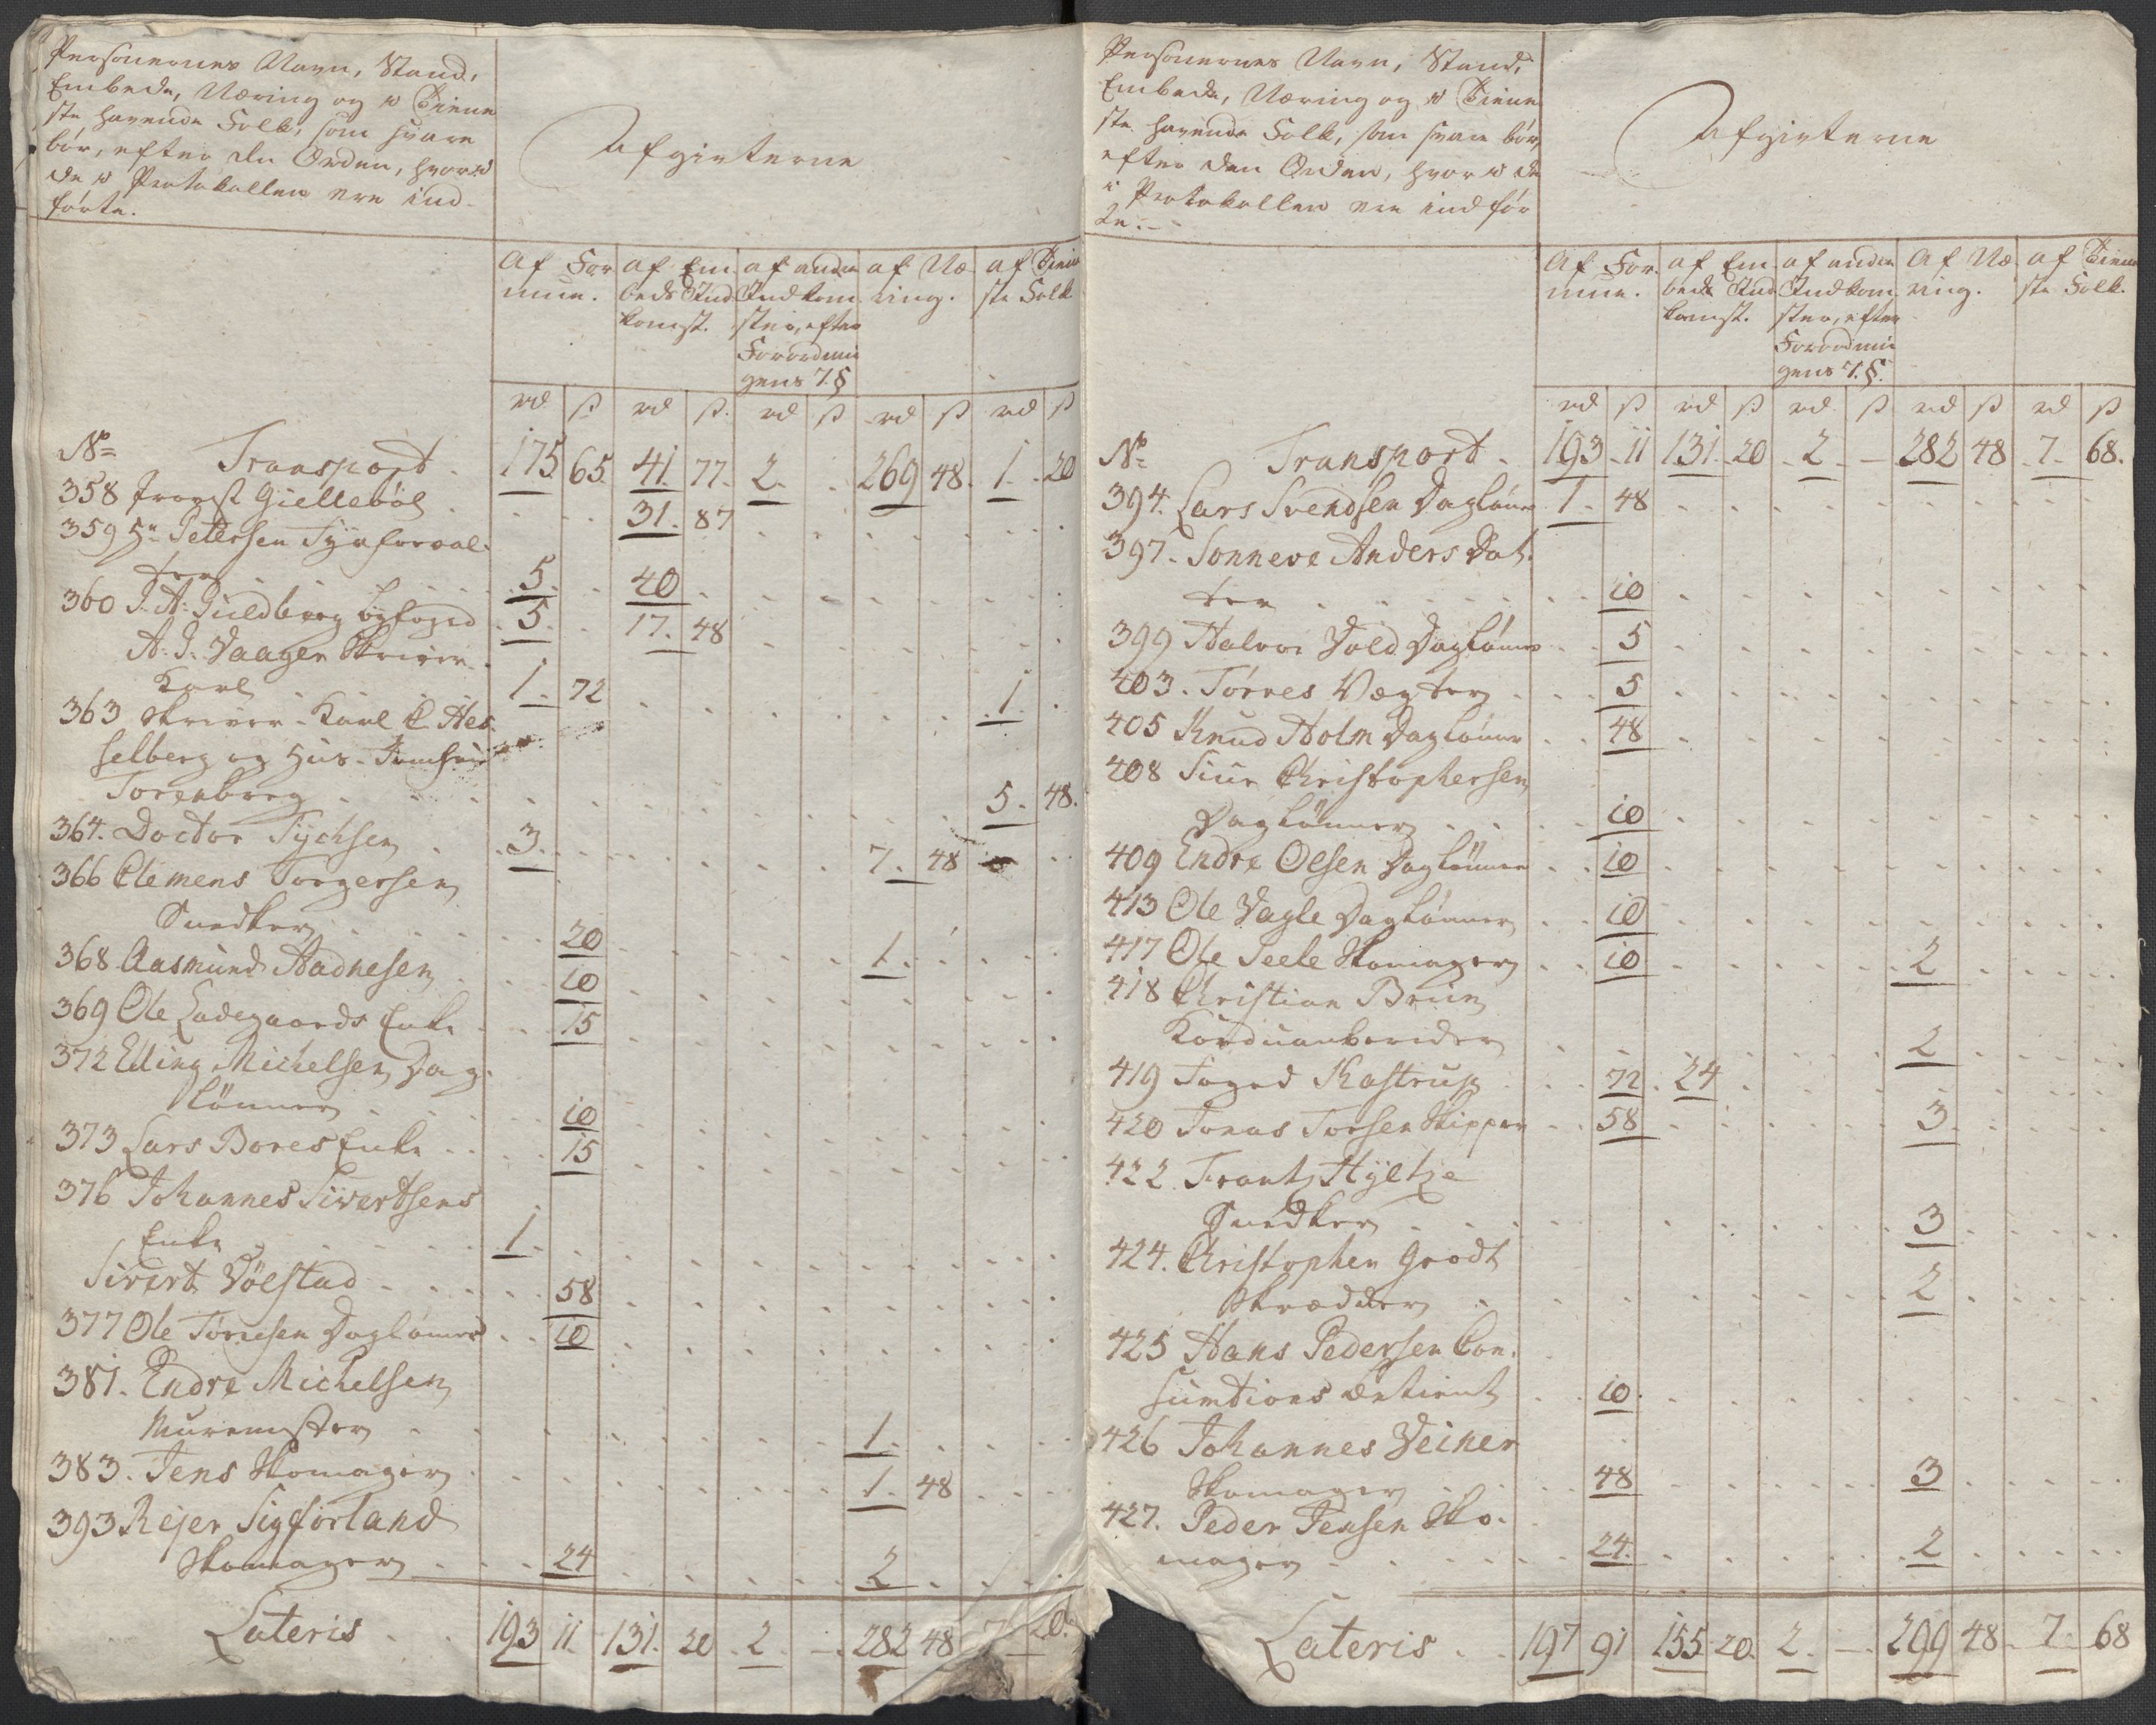 Personernes Navn, Stand,
Embede, Næring og i Tiene
ste havende Folk, som svare
bör, efter den Orden, hvor i
de i Protokollen ere ind-
förte.
Afgivterne
Af For
mue.
af Em
beds Ind
komst.
af andre
Indkom
ster, efter
Forordnin
gens 7. §
af Næ
ring.
af Tiene
ste Folk
rd ß rd ß rd ß rd ß rd ß
No Transport 175 65 41. 77. 2. 269 48. 1. 20
358 Provst Giellebøl 31. 87
359 Hr Petersen Tÿnforval-
ter 5. 40
360 J. A. Guldberg Byfoged 5. 17. 48
A. J. Vaager Skriver
Karl 1. 72 1.
363 Skriver-Karl C Hes-
selberg og Huus-Jomfrue
Torenberg 5. 48.
364. Doctor Tÿchsen 3. 7. 48
366 Clemens Torgersen
Snedker 20 1.
368 Aasmund Aadnesen 10
369 Ole Ladegaards Enke 15
372 Elling Michelsen Dag-
lönner 10
373 Lars Bores Enke 15
376 Johannes Sivertsens
Enke 1.
Sivert Vølstad 58
377 Ole Törresen Daglönner 10
381. Endre Michelsen
Muremester 1.
383. Jens Skomager 1. 48
393 Rejer Sigförland
Skomager 24 2
Lateris 193 11. 131. 20 2. 282 48 7 20.
Personernes Navn, Stand,
Embede, Næring og i Tiene
ste havende Folk, som svare bör,
efter den Orden, hvor i de
i Protokollen ere indför
te.
Afgivterne
Af For-
mue.
af Em
beds Ind
komst.
af andre
Indkom
ster, efter
Forordnin
gens 7. §.
Af Næ
ring.
af Tiene
ste Folk.
rd ß rd ß rd ß rd ß rd ß
No Transport 193 11 131. 20 2. 282 48 7. 68.
394. Lars Svendsen Daglönner 1. 48
397. Sonneve Anders Dat-
ter 10
399 Halvor Vold Daglönner 5
403. Törres Vægter 5
405 Knud Holm Daglönner 48
408 Siur Christophersen
Daglönner 10
409 Endre Olsen Daglönner 10
413 Ole Vagle Daglönner 10
417 Ole Seele Skomager 10 2
418 Christian Brun
Korduanbereder 2
419 Foged Kastrup 72. 24
420 Jonas Torsen Skipper 58 3.
422. Frantz Hÿeltze
Snedker 3
424. Christopher Grodt
Skrædder 2
425 Hans Pedersen Con-
sumtions betient 10.
426 Johannes Veiner
Skomager 48 3
427. Peder Jensen Sko-
mager 24. 2
Lateris 197 91 155 20. 2. 299 48 7. 68